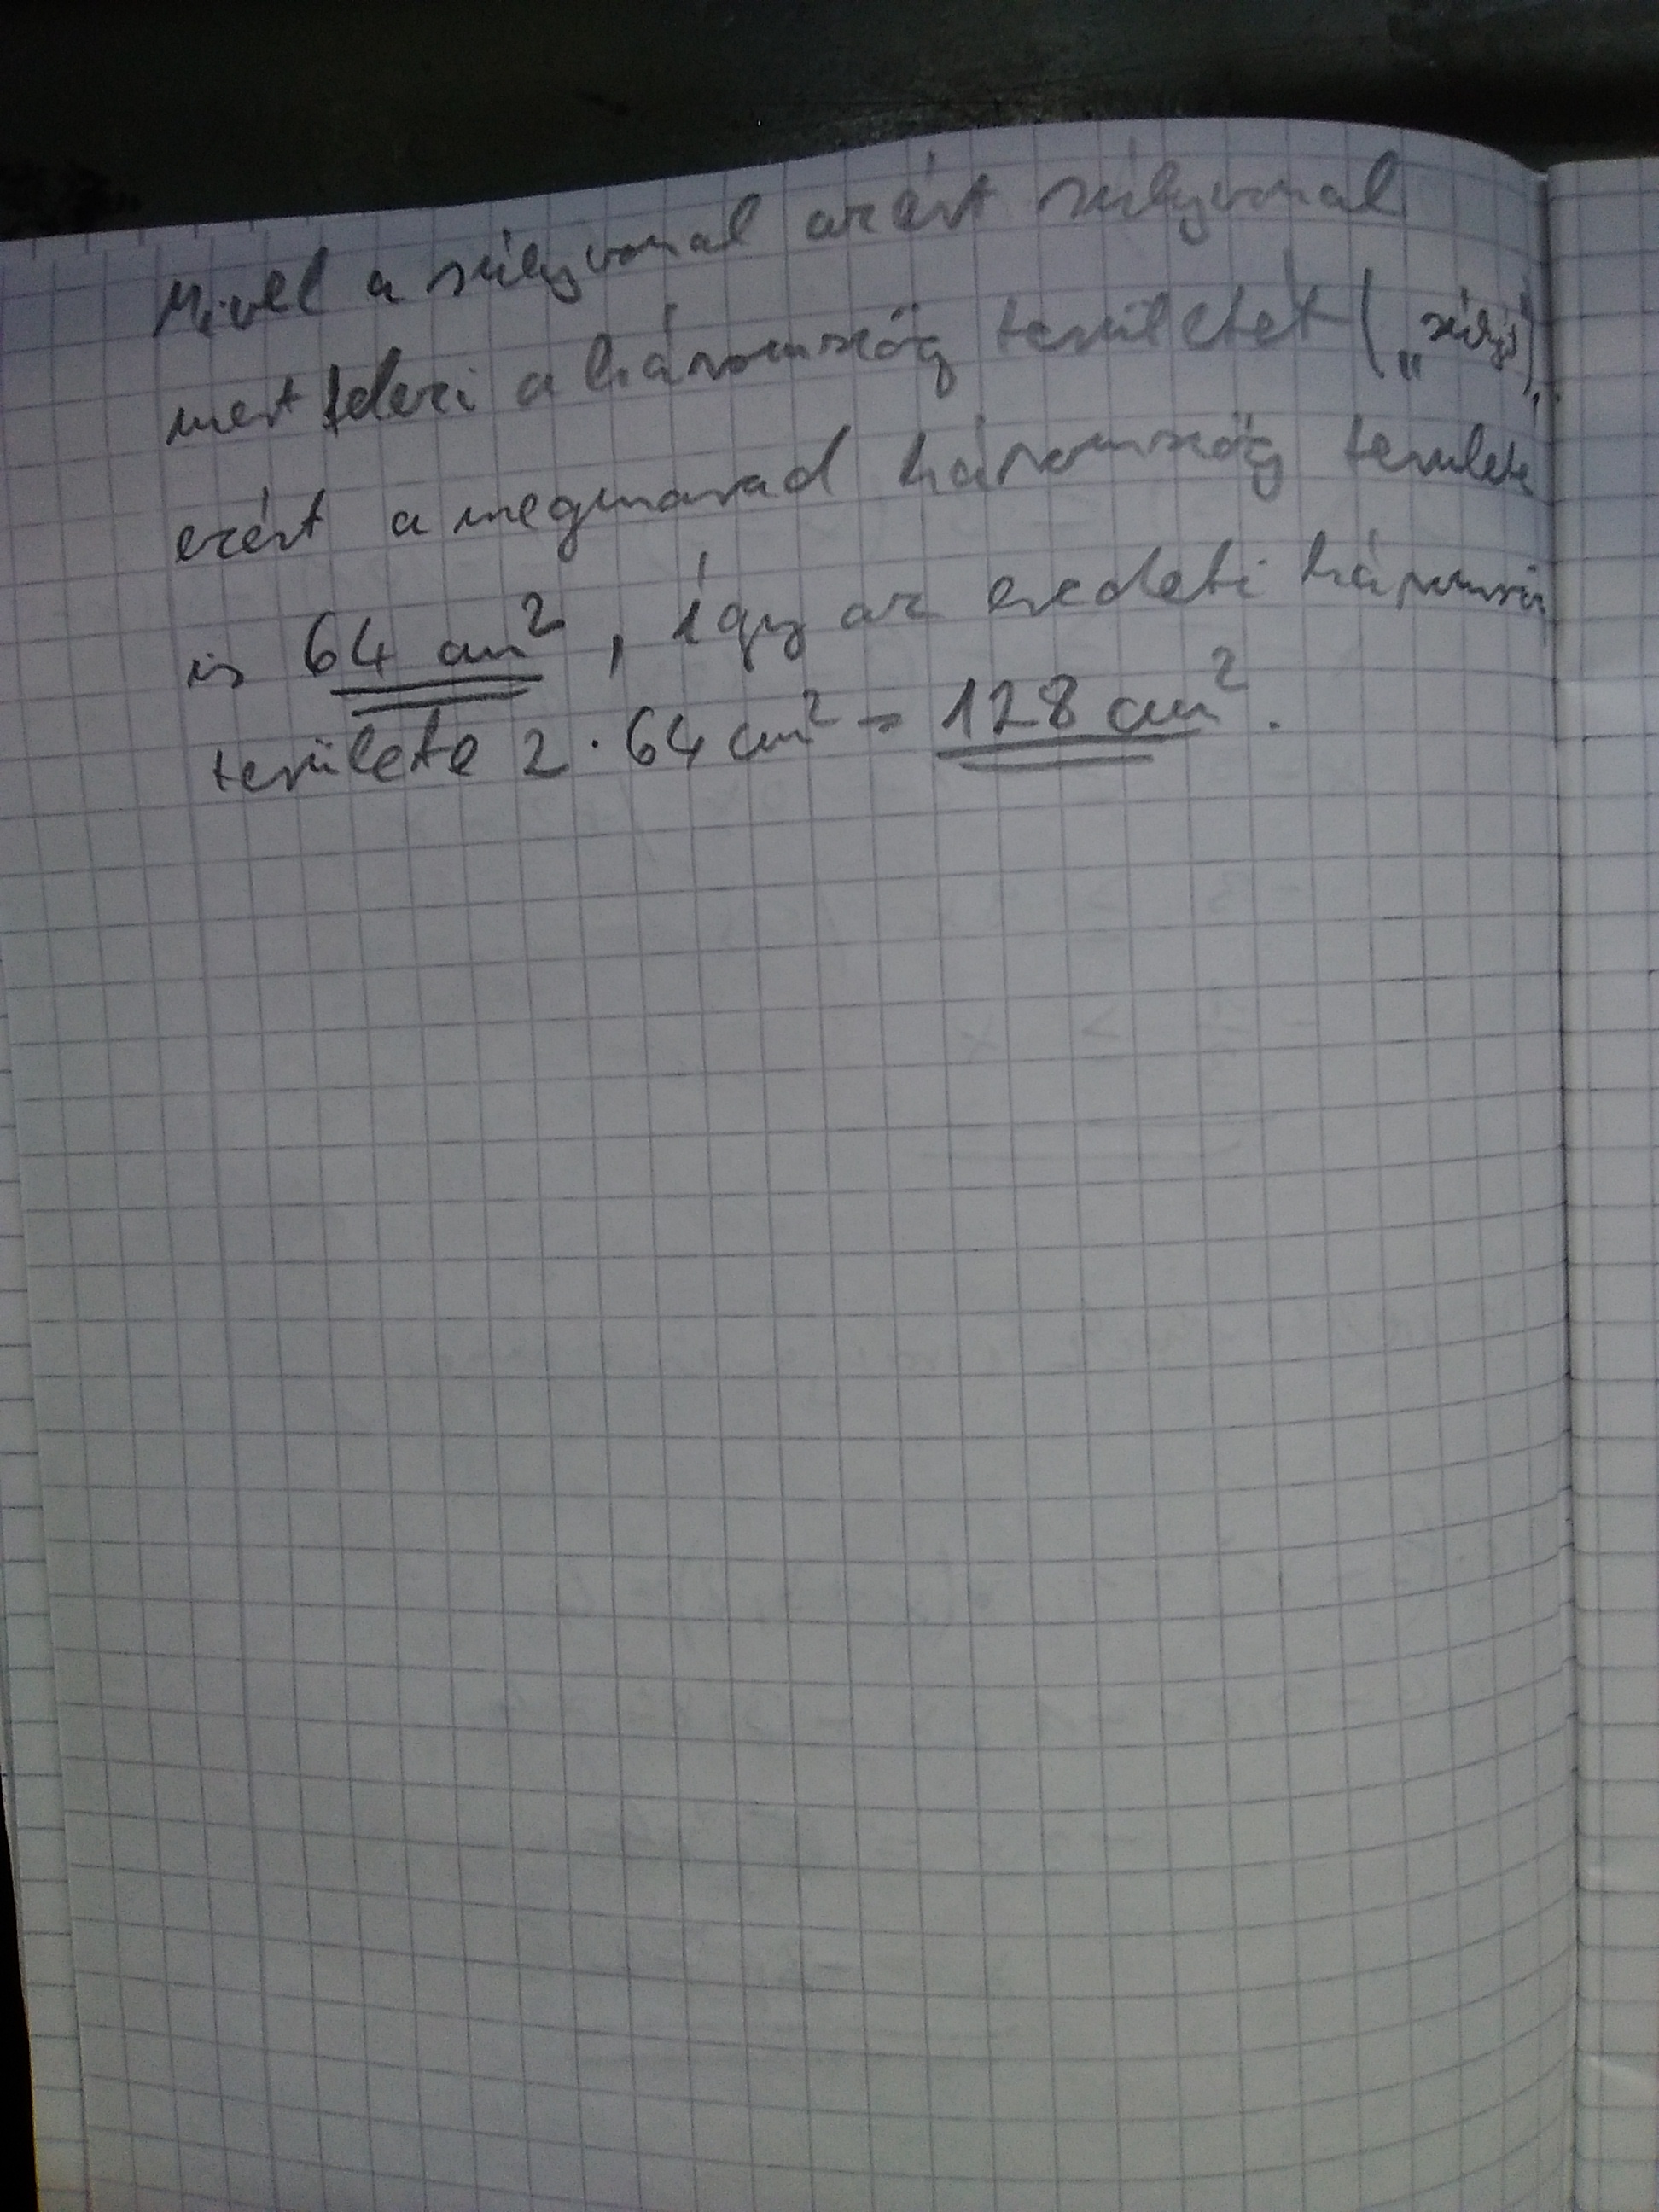 Mivel a súlyvonal azért súlyvonal
mert felezi a háromszög területét („súlyát”),
ezért a megmarad háromszög területe
is 64 cm², így az eredeti háromszög
területe 2 · 64 cm² = 128 cm².